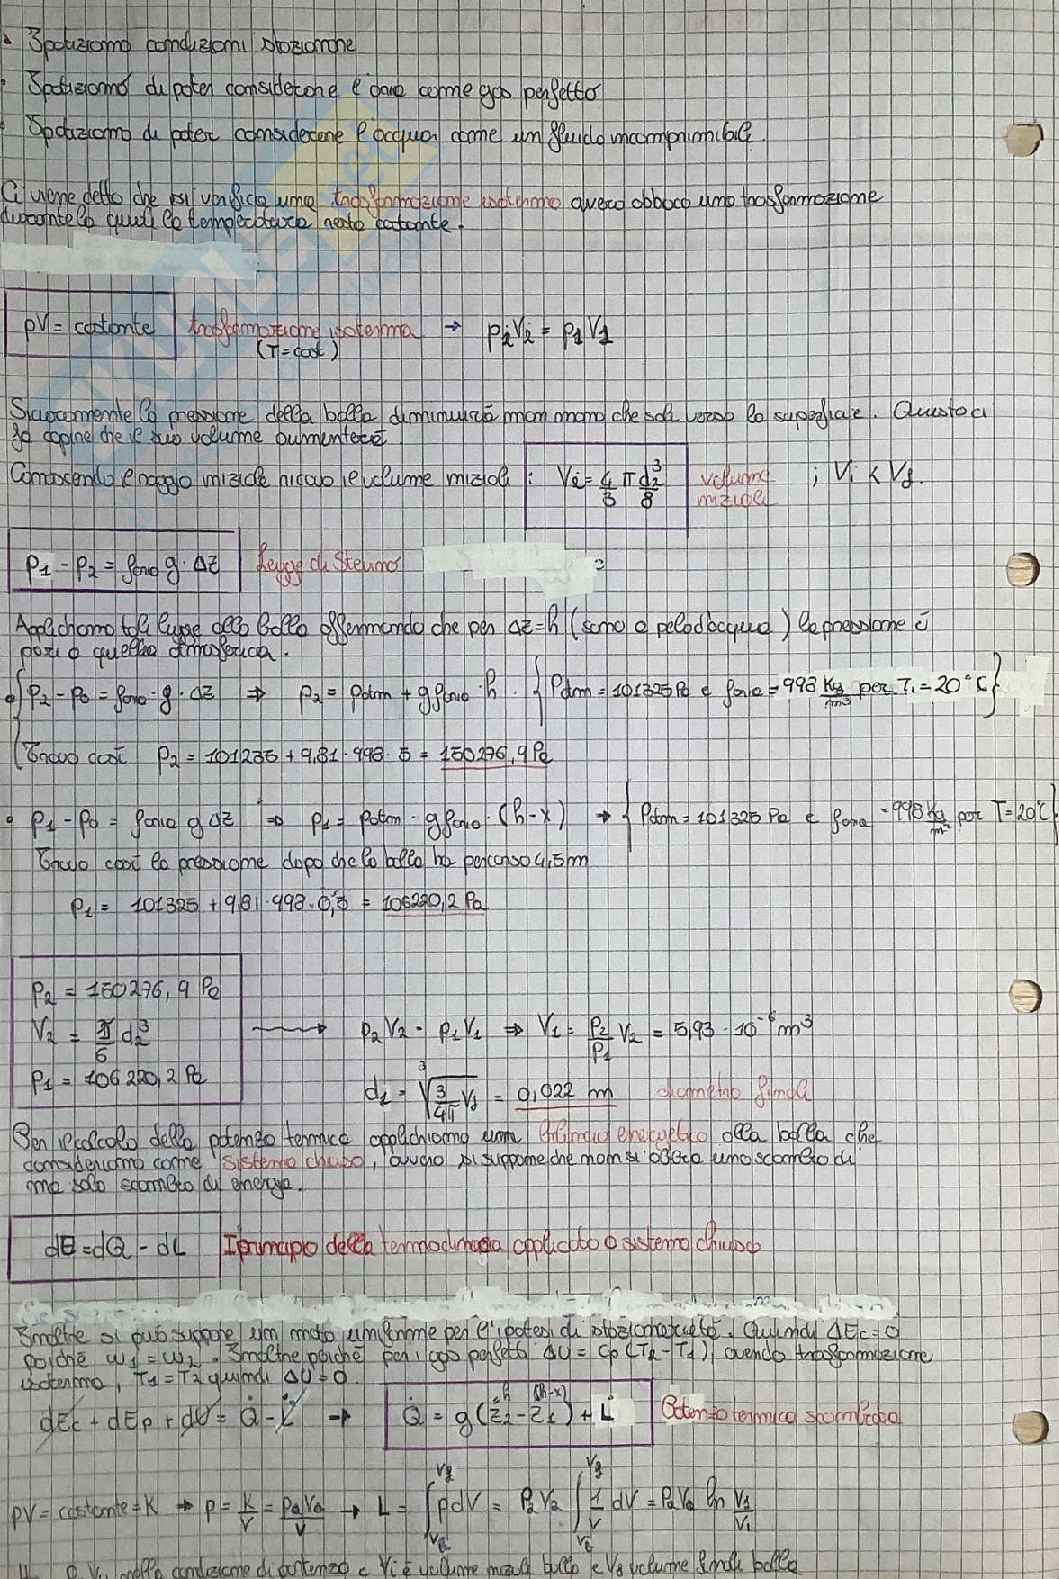 Ipotizziamo condizioni stazionarie
Ipotizziamo di poter considerare l'aria come gas perfetto
Ipotizziamo di poter considerare l'acqua come un fluido incomprimibile.
Ci viene detto che si verifica una trasformazione isoterma ovvero abbiamo una trasformazione
durante la quale la temperatura resta costante.
pV = costante trasformazione isoterma → p₂V₂ = p₁V₁
(T=cost)
Sicuramente la pressione della bolla diminuirà man mano che sale verso la superficie. Questo ci
fa capire che il suo volume aumenterà
Conoscendo il raggio iniziale ricavo il volume iniziale : Vi = 4/3 π d₂³/8 volume iniziale ; Vi < Vf.
p₁ - p₂ = ρg·Δz Legge di Stevino
Applichiamo tale legge alla bolla affermando che per Δz=h (siamo a pelo d'acqua) la pressione è
pari a quella atmosferica.
p₂ - p₀ = ρ·g·Δz ⇒ p₂ = patm + gρ·h. {patm = 101325 Pa e ρ = 998 Kg/m³ per T₁ = 20°C}
Trovo così p₂ = 101235 + 9,81·998·5 = 150276,9 Pa
p₁ - p₀ = ρ g Δz ⇒ p₁ = patm - gρ·(h-x) → {patm = 101325 Pa e ρ = 998 Kg/m³ per T=20°C}
Trovo così la pressione dopo che la bolla ha percorso 4,5m
p₁ = 101325 + 9,81·998·0,5 = 106220,2 Pa
p₂ = 150276,9 Pa
V₂ = π/6 d₂³ → p₂V₂ = p₁V₁ ⇒ V₁ = p₂/p₁ V₂ = 5,93·10⁻⁶ m³
p₁ = 106220,2 Pa
d₁ = ³√(3/4π V₁) = 0,022 m diametro finale
Per il calcolo della potenza termica applichiamo un bilancio energetico della bolla che
consideriamo come sistema chiuso, ovvero si suppone che non si abbia uno scambio di
ma solo scambio di energia.
dE = dQ - dL I principio della termodinamica applicato a sistema chiuso
Inoltre si può suppone un moto uniforme per l'ipotesi di stazionarietà. Quindi ΔEc = 0
poichè w₁ = w₂. Inoltre poichè per i gas perfetti ΔU = cp(T₂-T₁), avendo trasformazione
isoterma, T₁ = T₂ quindi ΔU = 0.
dEc + dEp + dU = Q̇ - L̇ → Q̇ = g(z₂ - z₁) + L̇ Potenza termica scambiata
h (h-x)
pV = costante = K → p = K/V = p₂V₂/V → L = ∫pdV = P₂V₂ ∫ 1/V dV = P₂V₂ ln V₂/V₁
condizione di partenza e Vi è volume iniziale bolla e Vf volume finale bolla